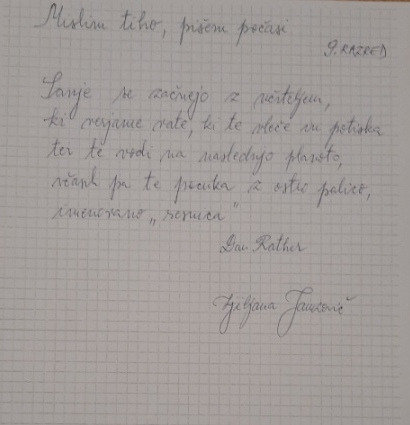 Mislim tiho, pišem počasi
9. RAZRED
Sanje se začnejo z učiteljem,
ki verjame vate, ki te vleče in potiska
ter te vodi na naslednjo planoto,
včasih pa te pocuka z ostro palico,
imenovano „resnica"
Dan Rather
Ljiljana